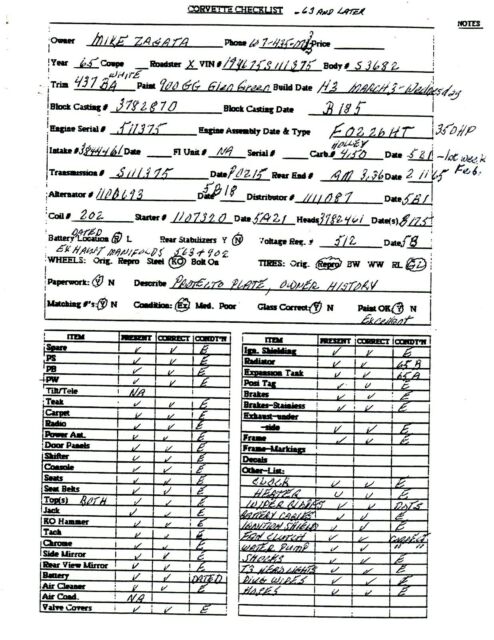 CORVETTE CHECKLIST - 63 AND LATER
NOTES
Owner MIKE ZAGATA Phone Price
Year 65 Coupe Roadster X VIN # 194675S111375 Body # S3682
WHITE
Trim 437 BA Paint 900 GG Glen Green Build Date H3 MARCH 3-Wednesday
Block Casting # 3782870 Block Casting Date B185
Engine Serial # 5111375 Engine Assembly Date & Type F0226HT 350HP
HOLLEY
Intake # 3844461 Date FI Unit # NA Serial # Carb. 4150 Date 521 - 1st week Feb.
Transmission # S111375 Date P0215 Rear End # AM 3.36 Date 2 11 65
Alternator # 1100693 Date 5B18 Distributor # 1111087 Date 5B1
Coil # 202 Starter # 1107320 Date 5A21 Heads 3782461 Date(s) B175
DATED
Battery Location R L Rear Stabilizers Y N Voltage Reg. # 512 Date 5B
EXHAUST MANIFOLDS 563 + 902
WHEELS: Orig. Repro Steel KO Bolt On TIRES: Orig. Repro BW WW RL GL
Paperwork: Y N Describe PROTECTO PLATE, OWNER HISTORY
Matching #'s: Y N Condition: Ex Med. Poor Glass Correct: Y N Paint OK: Y N
Excellent
ITEM PRESENT CORRECT CONDT'N ITEM PRESENT CORRECT CONDT'N
Spare ✓ ✓ E Ign. Shielding ✓ ✓ E
PS ✓ ✓ E Radiator ✓ ✓ 65 A
PB ✓ ✓ E Expansion Tank ✓ ✓ 65A
PW ✓ ✓ E Posi Tag ✓ ✓ E
Tilt/Tele NA Brakes ✓ ✓ E
Teak ✓ ✓ E Brakes-Stainless ✓ ✓ E
Carpet ✓ ✓ E Exhaust-under
Radio ✓ ✓ E -side ✓ ✓ E
Power Ant. ✓ ✓ E Frame ✓ ✓ E
Door Panels ✓ ✓ E Frame-Markings
Shifter ✓ ✓ E Decals
Console ✓ ✓ E Other-List:
Seats ✓ ✓ E CLOCK ✓ ✓ E
Seat Belts ✓ ✓ E HEATER ✓ ✓ E
Top(s) BOTH ✓ ✓ E WIPER BLADES ✓ ✓
Jack ✓ ✓ E BATTERY CABLES ✓ ✓ E
KO Hammer ✓ ✓ E IGNITION SHIELD ✓ ✓ E
Tach ✓ ✓ E FAN CLUTCH ✓ ✓ CORRECT
Chrome ✓ ✓ E WATER PUMP ✓ ✓ " "
Side Mirror ✓ ✓ E SHOCKS ✓ ✓ E
Rear View Mirror ✓ ✓ E T3 HEADLIGHTS ✓ ✓ E
Battery ✓ ✓ DATED ✓ ✓ E
Air Cleaner ✓ ✓ E HOSES ✓ ✓ E
Air Cond. NA
Valve Covers ✓ ✓ E